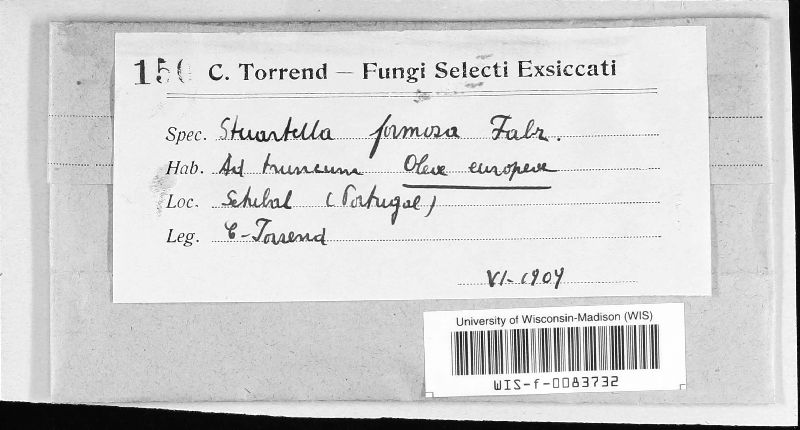 150 C. Torrend — Fungi Selecti Exsiccati
Spec. Stuartella formosa Fabr.
Hab. Ad truncum Oleae europeae
Loc. Setubal (Portugal)
Leg. C. Torrend
VI-1909
University of Wisconsin-Madison (WIS)
WIS-f-0083732